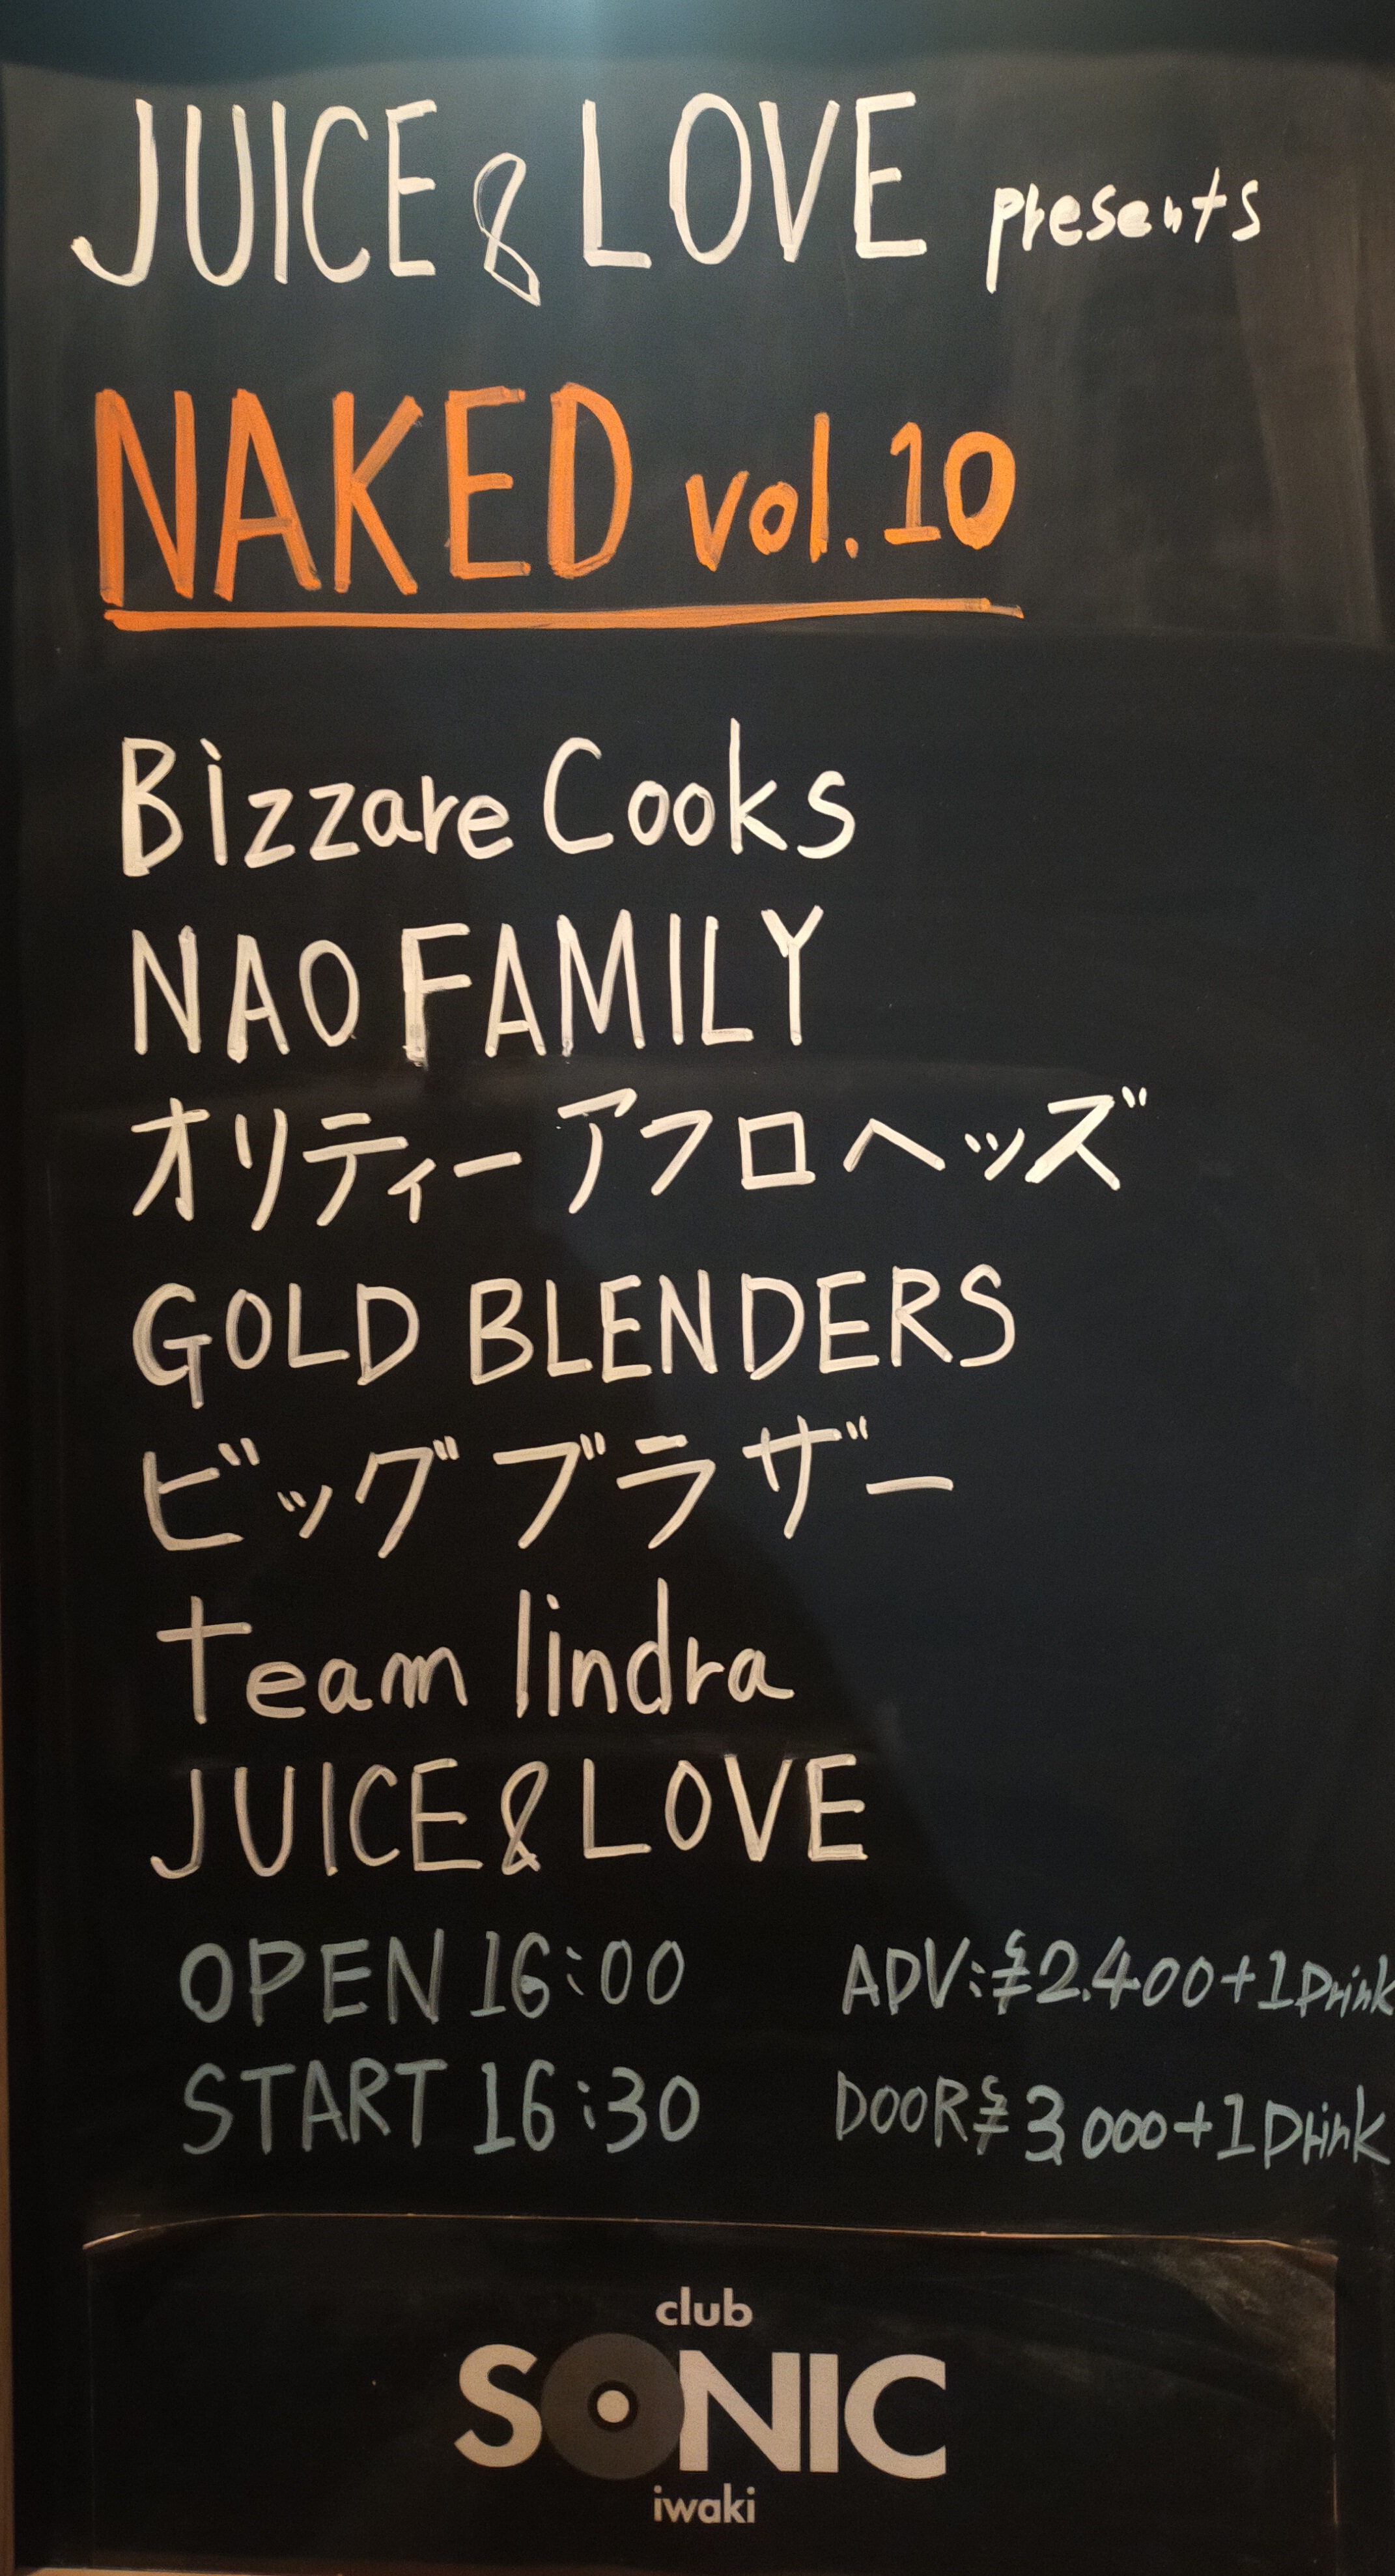 JUICE & LOVE presents
NAKED vol.10
Bizzare Cooks
NAO FAMILY
オリティーアフロヘッズ
GOLD BLENDERS
ビッグブラザー
team lindra
JUICE & LOVE
OPEN 16:00 ADV:¥2.400+1Drink
START 16:30 DOOR¥3000+1Drink
club
SONIC
iwaki